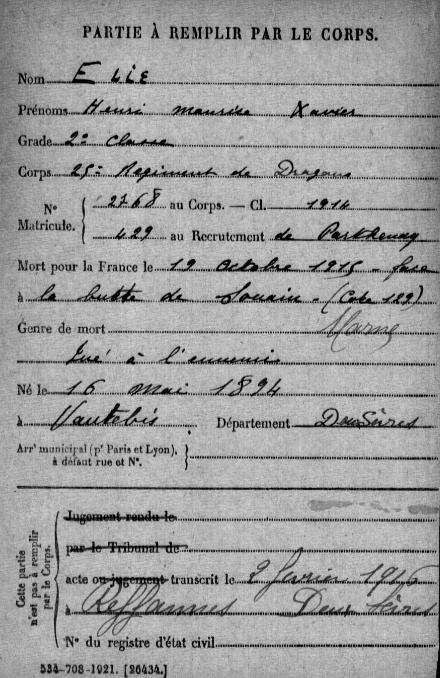 PARTIE À REMPLIR PAR LE CORPS.
Nom ELIE
Prénoms Henri Maurice Xavier
Grade 2e Classe
Corps 25e Régiment de Dragons
N° Matricule. { 2768 au Corps. — Cl. 1914
429 au Recrutement de Parthenay
Mort pour la France le 19 Octobre 1915 - face
à la butte de Souain - (Cote 129)
Genre de mort Marne
Tué à l'ennemi
Né le 16 Mai 1894
à Vautebis Département Deux Sèvres
Arrt municipal (pr Paris et Lyon), à défaut rue et N°. }
Cette partie n'est pas à remplir par le Corps. {
Jugement rendu le
par le Tribunal de
acte ou jugement transcrit le 2 février 1916
à Reffannes Deux Sèvres
N° du registre d'état civil
534-708-1921. [26434.]